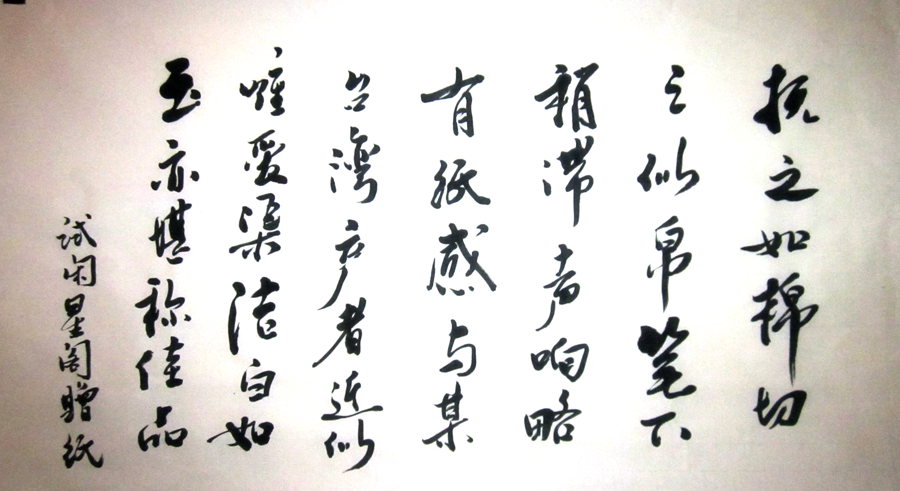 抚之如棉切
之似帛笔下
稍滞声响略
有纸感与某
台湾产者近似
唯爱渠洁白如
玉亦堪称佳品
试闲星阁赠纸